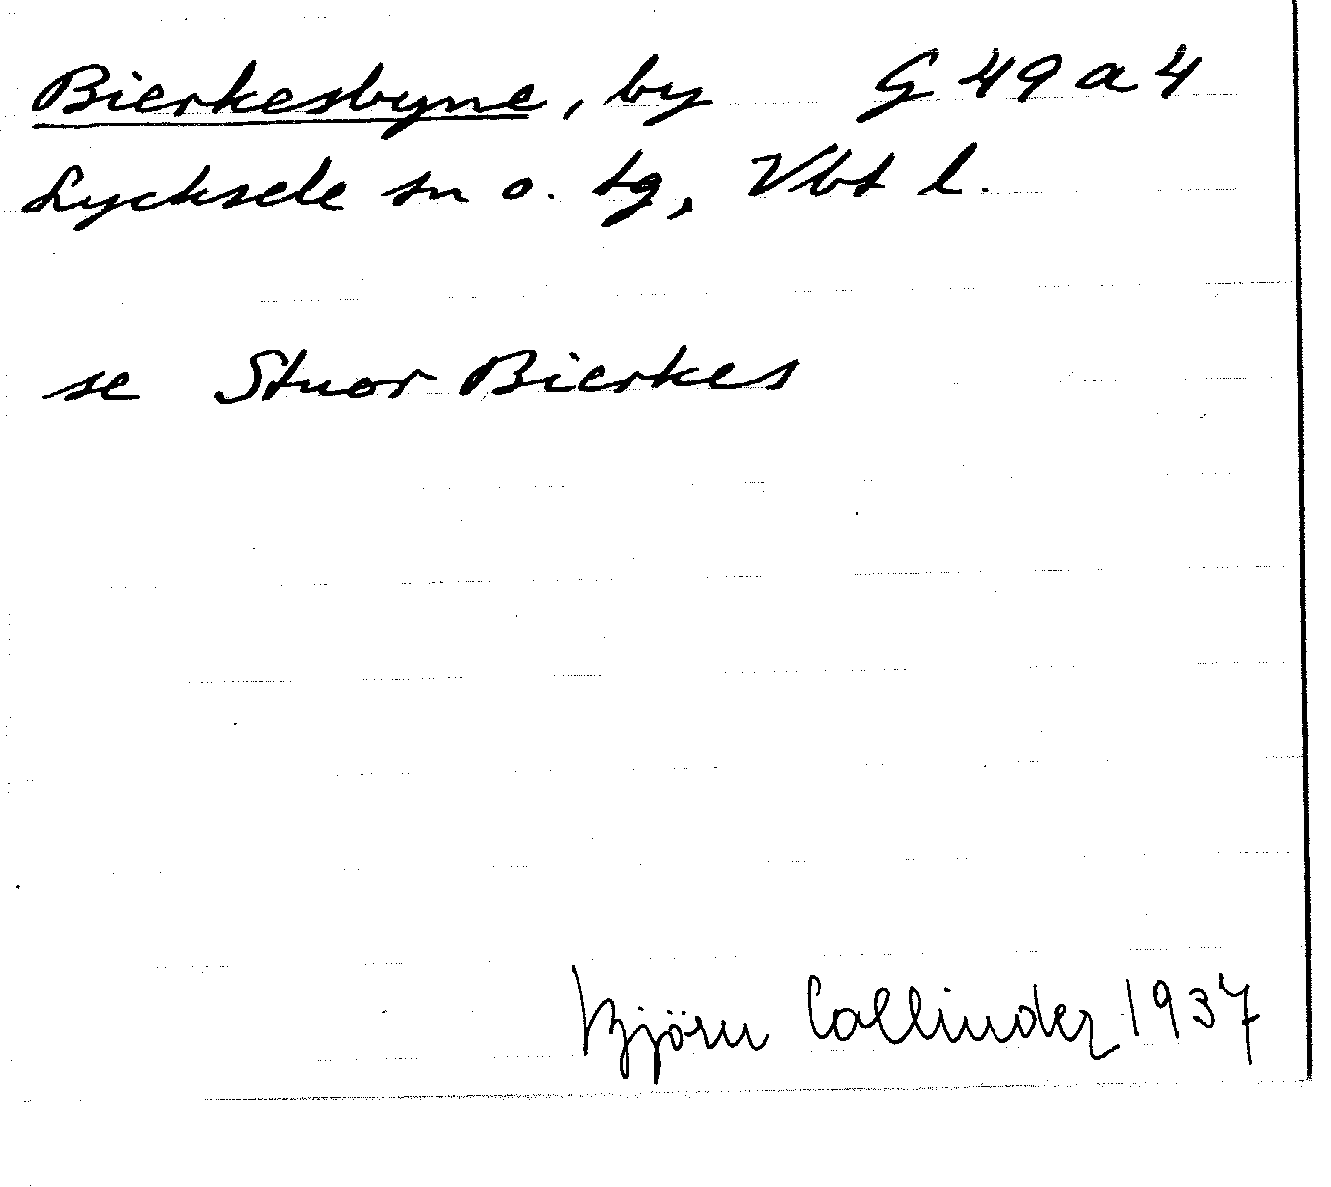 Bierkesbyne, by G 49 a 4
Lycksele sn o. tg, Vbt l.
se Stuor Bierkes
Björn Collinder 1937